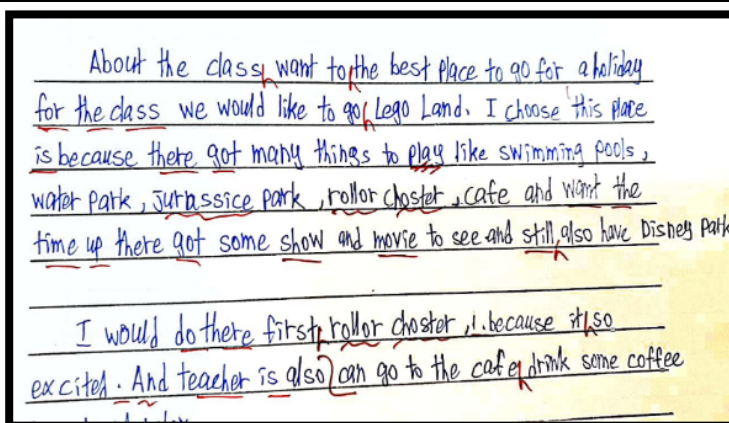 About the class want to the best place to go for a holiday
for the class we would like to go Lego Land. I choose this place
is because there got many things to play like swimming pools,
water park, jurassice park, rollor choster, cafe and want the
time up there got some show and movie to see and still, also have Disney Park
I would do there first rollor choster, because it so
excited. And teacher is also can go to the cafe drink some coffee